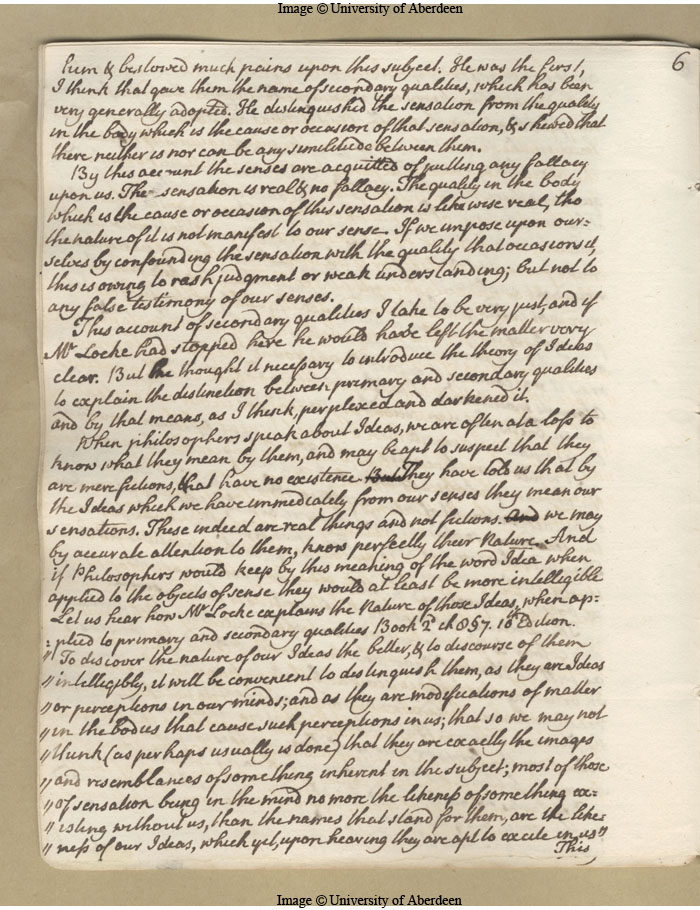 Image © University of Aberdeen
6
him & bestowed much pains upon this subject. He was the first,
I think that gave them the name of secondary qualities, which has been
very generally adopted. He distinguished the sensation from the quality
in the body which is the cause or occasion of that sensation, & shewed that
there neither is nor can be any similitude between them.
By this account the senses are acquitted of putting any fallacy
upon us. The sensation is real & no fallacy. The quality in the body
which is the cause or occasion of this sensation is likewise real, tho
the nature of it is not manifest to our sense. If we impose upon our=
selves by confounding the sensation with the quality that occasions it,
this is owing to rash judgment or weak understanding; but not to
any false testimony of our senses.
This account of secondary qualities I take to be very just, and if
Mr Locke had stopped here he would have left the matter very
clear. But he thought it necessary to introduce the theory of Ideas
to explain the distinction between primary and secondary qualities
and by that means, as I think, perplexed and darkened it.
When philosophers speak about Ideas, we are often at a loss to
know what they mean by them, and may be apt to suspect that they
are mere fictions, that have no existence. But They have told us that by
the Ideas which we have immediately from our senses they mean our
sensations. These indeed are real things and not fictions. And we may
by accurate attention to them, know perfectly their Nature. And
if Philosophers would keep by this meaning of the word Idea when
applied to the objects of sense they would at least be more intelligible
Let us hear how Mr Locke explains the Nature of those Ideas, when ap=
=plied to primary and secondary qualities Book 2d ch 8 § 7. 10th Edition.
" To discover the nature of our Ideas the better, & to discourse of them
" intelligibly, it will be convenient to distinguish them, as they are Ideas
" or perceptions in our minds; and as they are modifications of matter
" in the bodies that cause such perceptions in us; that so we may not
" think (as perhaps usually is done) that they are exactly the images
" and resemblances of something inherent in the subject; most of those
" of sensation being in the mind no more the likeness of something ex=
" isting without us, than the names that stand for them, are the like=
" ness of our Ideas, which yet, upon hearing they are apt to excite in us"
This
Image © University of Aberdeen